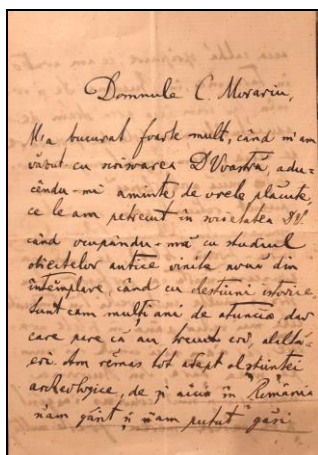 Domnule C. Morariu,
M'a bucurat foarte mult, când m'am
văzut cu scrisoarea DVoastră, adu=
cêndu-mĭ aminte de orele plăcute,
ce le am petrecut în societatea DV.
când ocupându-mă cu studiul
obiectelor antice vinite nouă din
întêmplare, când cu chestiuni istorice.
Sunt cam mulți ani de atuncia, dar
care pare că au trecut erĭ, alaltă-
erĭ. Am rĕmas tot adept al științei
archeologice, de și aicia în România
n'am găsit și n'am putut găsi